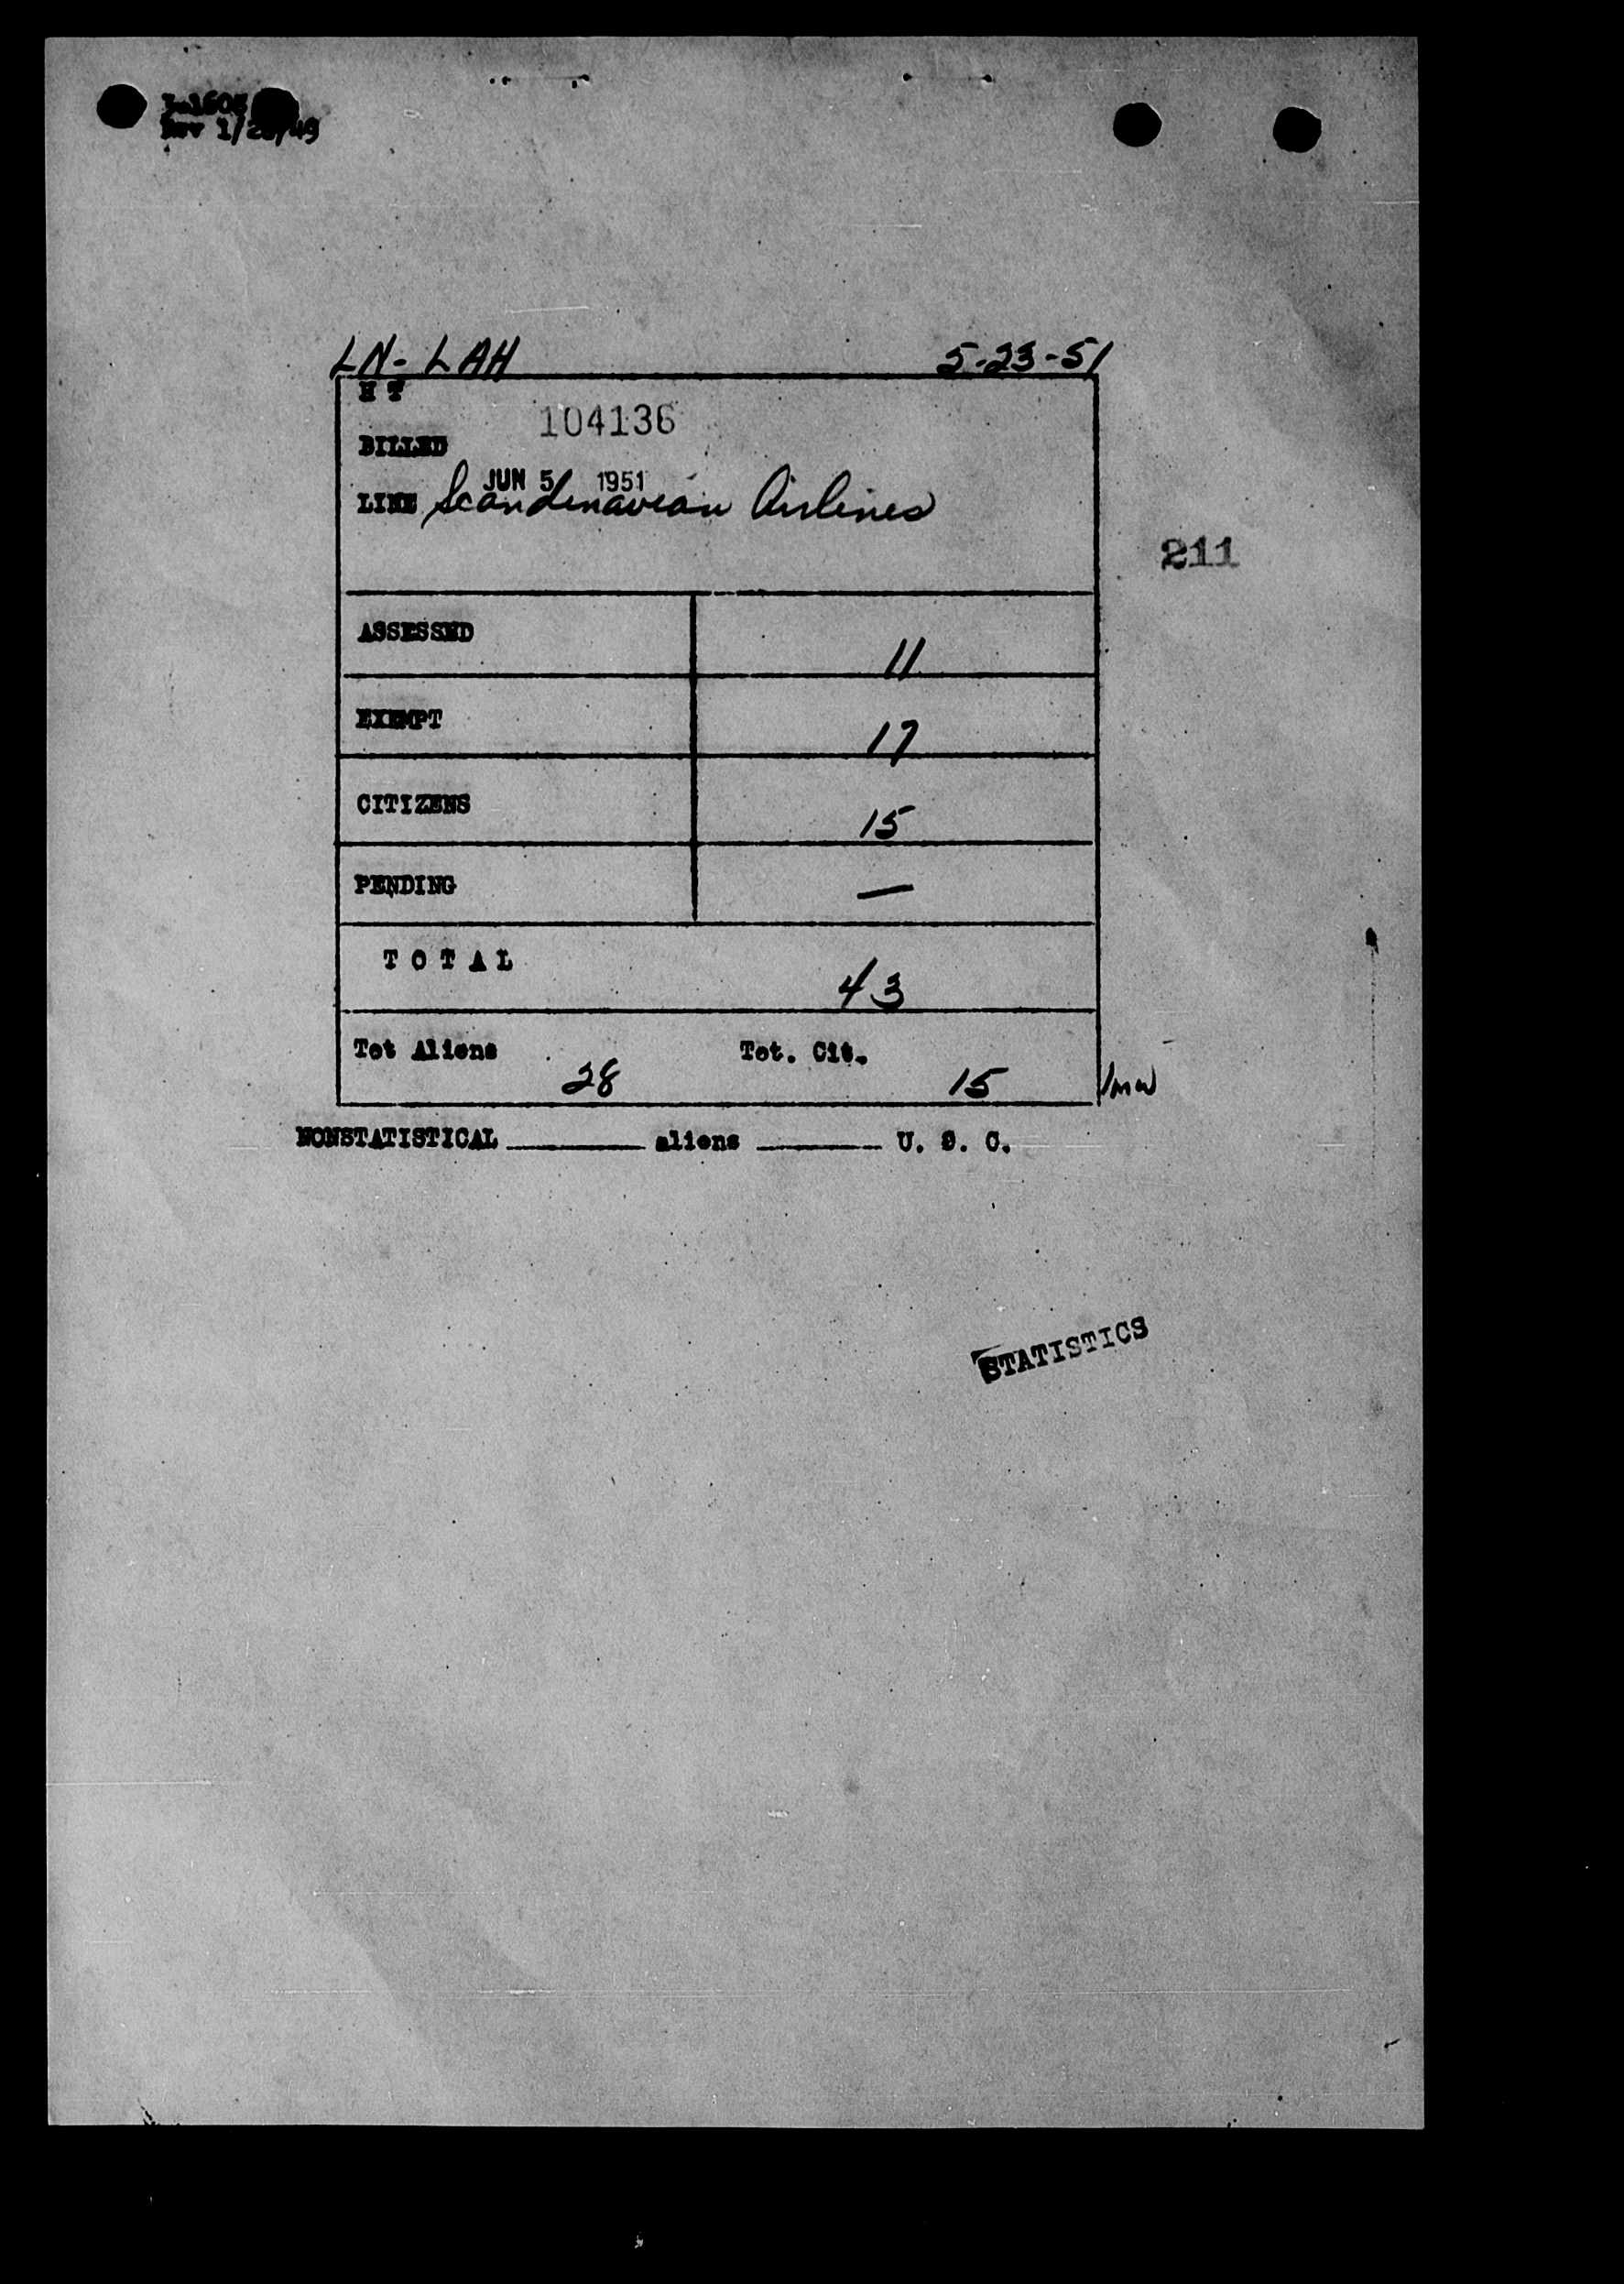 Rev 1/28/49
LN-LAH 5-23-51
H T
104136
BILLED
JUN 5 1951
LINE Scandinavian Airlines
211
ASSESSED 11
EXEMPT 17
CITIZENS 15
PENDING —
TOTAL 43
Tot Aliens 28 Tot. Cit. 15
NONSTATISTICAL ______ aliens ______ U. S. C.
STATISTICS